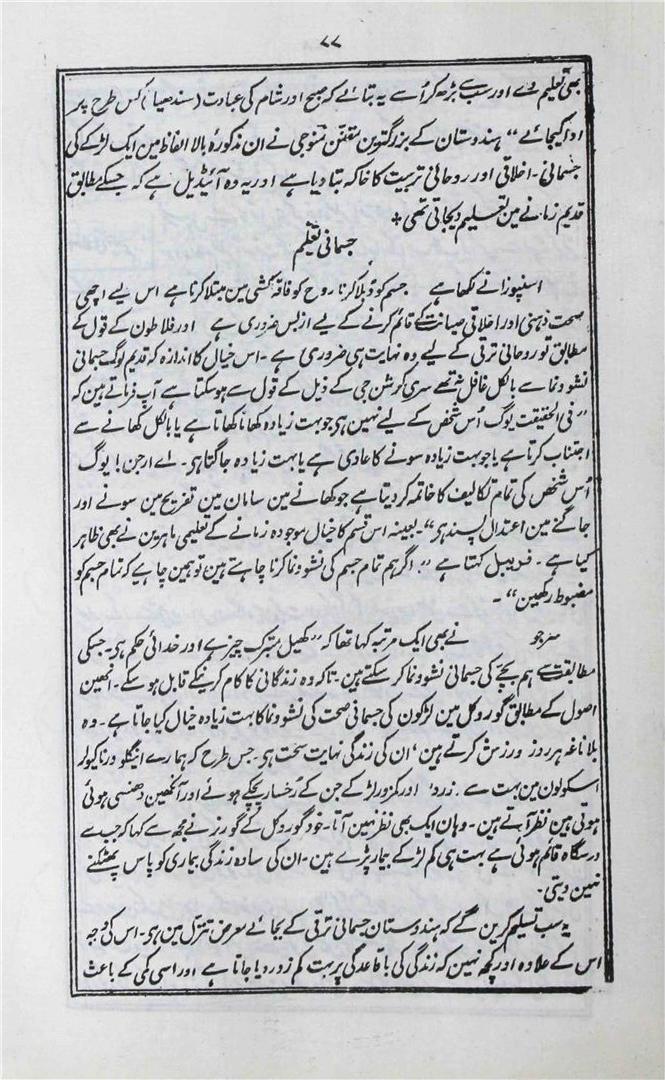 ۷۷
بھی تعلیم دے اور سب سے بڑھ کر اُسے یہ بتائے کہ صبح اور شام کی عبادت (سندھیا) کس طرح پر
ادا کیجائے“ ہندوستان کے بزرگترین مقنن منوجی نے ان مذکورۂ بالا الفاظ مین ایک لڑکے کی
جسمانی۔ اخلاقی اور روحانی تربیت کا خاکہ بتا دیا ہے اور یہ وہ آئیڈیل ہے کہ جسکے مطابق
قدیم زمانے مین تعلیم دیجاتی تھی +
جسمانی تعلیم
اسنپوزا نے لکھا ہے جسم کو دُبلا کرنا روح کو فاقہ کشی مین مبتلا کرنا ہے اس لیے اچھی
صحت ذہنی اور اخلاقی صیانت کے قائم کرنے کے لیے ازبس ضروری ہے اور فلاطون کے قول کے
مطابق تو روحانی ترقی کے لیے وہ نہایت ہی ضروری ہے۔ اس خیال کا اندازہ کہ قدیم لوگ جسمانی
نشوونما سے بالکل غافل نتھے سری کرشن جی کے ذیل کے قول سے ہو سکتا ہے آپ فرماتے ہین کہ
”فی الحقیقت یوگ اُس شخص کے لیے نہین ہی جو بہت زیادہ کھانا کھاتا ہے یا بالکل کھانے سے
اجتناب کرتا ہے یا جو بہت زیادہ سونے کا عادی ہے یا بہت زیادہ جاگتا ہی۔ اے ارجن! یوگ
اُس شخص کی تمام تکالیف کا خاتمہ کر دیتا ہے جو کھانے مین سامان مین تفریح مین سونے اور
جاگنے مین اعتدال پسند ہی“۔ بعینہ اس قسم کا خیال موجودہ زمانے کے تعلیمی ماہرین نے بھی ظاہر
کیا ہے۔ فروبیل کہتا ہے ”اگر ہم تمام جسم کی نشوونما کرنا چاہتے ہین تو ہمین چاہیے کہ تمام جسم کو
مضبوط رکھین“۔
نے بھی ایک مرتبہ کہا تھا کہ ”کھیل متبرک چیز ہے اور خدائی حکم ہی۔ جسکی
مطابقت سے ہم بچّے کی جسمانی نشوونما کر سکتے ہین۔ تاکہ وہ زندگانی کا کام کرنیکے قابل ہو سکے۔ انھین
اصول کے مطابق گوروکل مین لڑکون کی جسمانی صحت کی نشوونما کا بہت زیادہ خیال کیا جاتا ہے۔ وہ
بلاناغہ ہر روز ورزش کرتے ہین‘ ان کی زندگی نہایت سخت ہی۔ جس طرح کہ ہمارے اینگلو ورناکیولر
اسکولون مین بہت سے زرد‘ اور کمزور لڑکے جن کے رُخسار پچکے ہوئے اور آنکھین دھنسی ہوئی
ہوتی ہین نظر آتے ہین۔ وہان ایک بھی نظر نہین آتا۔ خود گوروکل کے گورنر نے مجھ سے کہا کہ جب سے
درسگاہ قائم ہوئی ہے بہت ہی کم لڑکے بیمار پڑے ہین۔ ان کی سادہ زندگی بیماری کو پاس پھٹکنے
نہین دیتی۔
یہ سب تسلیم کرین گے کہ ہندوستان جسمانی ترقی کے بجائے معرض تنزل مین ہی۔ اس کی وجہ
اس کے علاوہ اور کچھ نہین کہ زندگی کی باقاعدگی پر بہت کم زور دیا جاتا ہے اور اسی کمی کے باعث